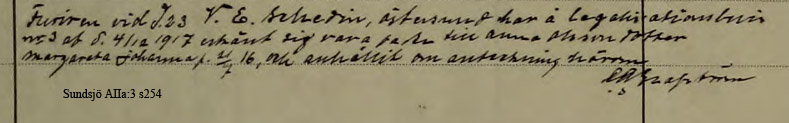 Furiren vid I.23 V. E. Schedin, Östersund har å legalisationsbevis
nr 3 af d. 4/12 1917 erkänt sig vara fader till Anna Olsson dotter
Margareta Johanna f. 16, och anhållit om anteckning härom
Sundsjö AIIa:3 s254